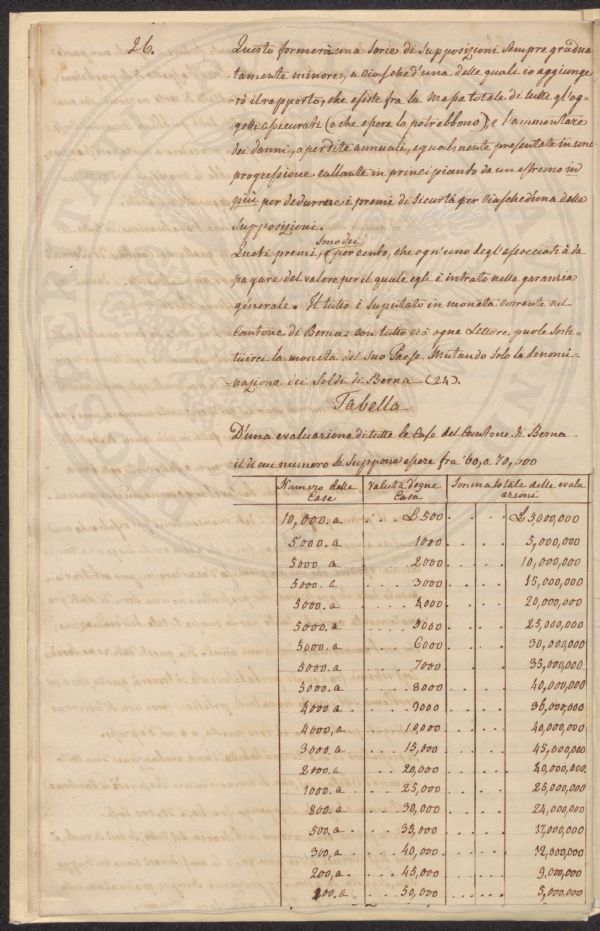 26.
Questo formerà una serie di supposizioni sempre gradua
tamente minore, a ciasched'una delle quale io aggiunge
rò il rapporto, che esiste fra la massa totale di tutti gl'og-
getti assicurati (o che essere lo potrebbono), e l'ammontare
dei danni, o perdite annuale, egualmente presentate in una
progressione callante in principianto da un estremo in
più per dedurne i premi di sicurtà per ciasched'una delle
supposizioni.
Questi premi, sono dei per cento, che ogn'uno degl'associati à da
pagare del valore per il quale egli è intrato nella garanzia
generale. Il tutto è suputato in moneta corrente nel
Cantone di Berna: con tutto ciò ogne Lettore puole sosti-
tuirci la moneta del suo Paese. Mutando solo la denomi-
-nazione dei Soldi di Berna - (24).
Tabella
D'una evaluazione di tutte le Case del Cantone di Berna
il di cui numero si suppone essere fra 60, a 70,000
Numero delle Case | Valuta d'ogne Casa | Somma totale delle evalu azioni
10,000. a . . . £ 500 . . . . £ 5,000,000
5000. a 1000 . . . . 5,000,000
5000 a . . . 2000 . . . . 10,000,000
5000. a . . . 3000 . . . . 15,000,000
5000. a . . . 4000 . . . . 20,000,000
5000. a . . . 5000 . . . . 25,000,000
5000. a . . . 6000 . . . . 30,000,000
5000. a . . . 7000 . . . . 35,000,000
5000. a . . . 8000 . . . . 40,000,000
4000 a . . . 9000 . . . . 36,000,000
4000, a . . . 10,000 . . . . 40,000,000
3000. a . . . 15,000 . . . . 45,000,000
2000. a . . . 20,000 . . . . 40,000,000
1000. a . . . 25,000 . . . . 25,000,000
800. a . . . 30,000 . . . . 24,000,000
500. a . . . 35,000 . . . . 17,000,000
300, a . . . 40,000 . . . . 12,000,000
200. a . . . 45,000 . . . . 9,000,000
100. a . . . 50,000 . . . . 5,000,000